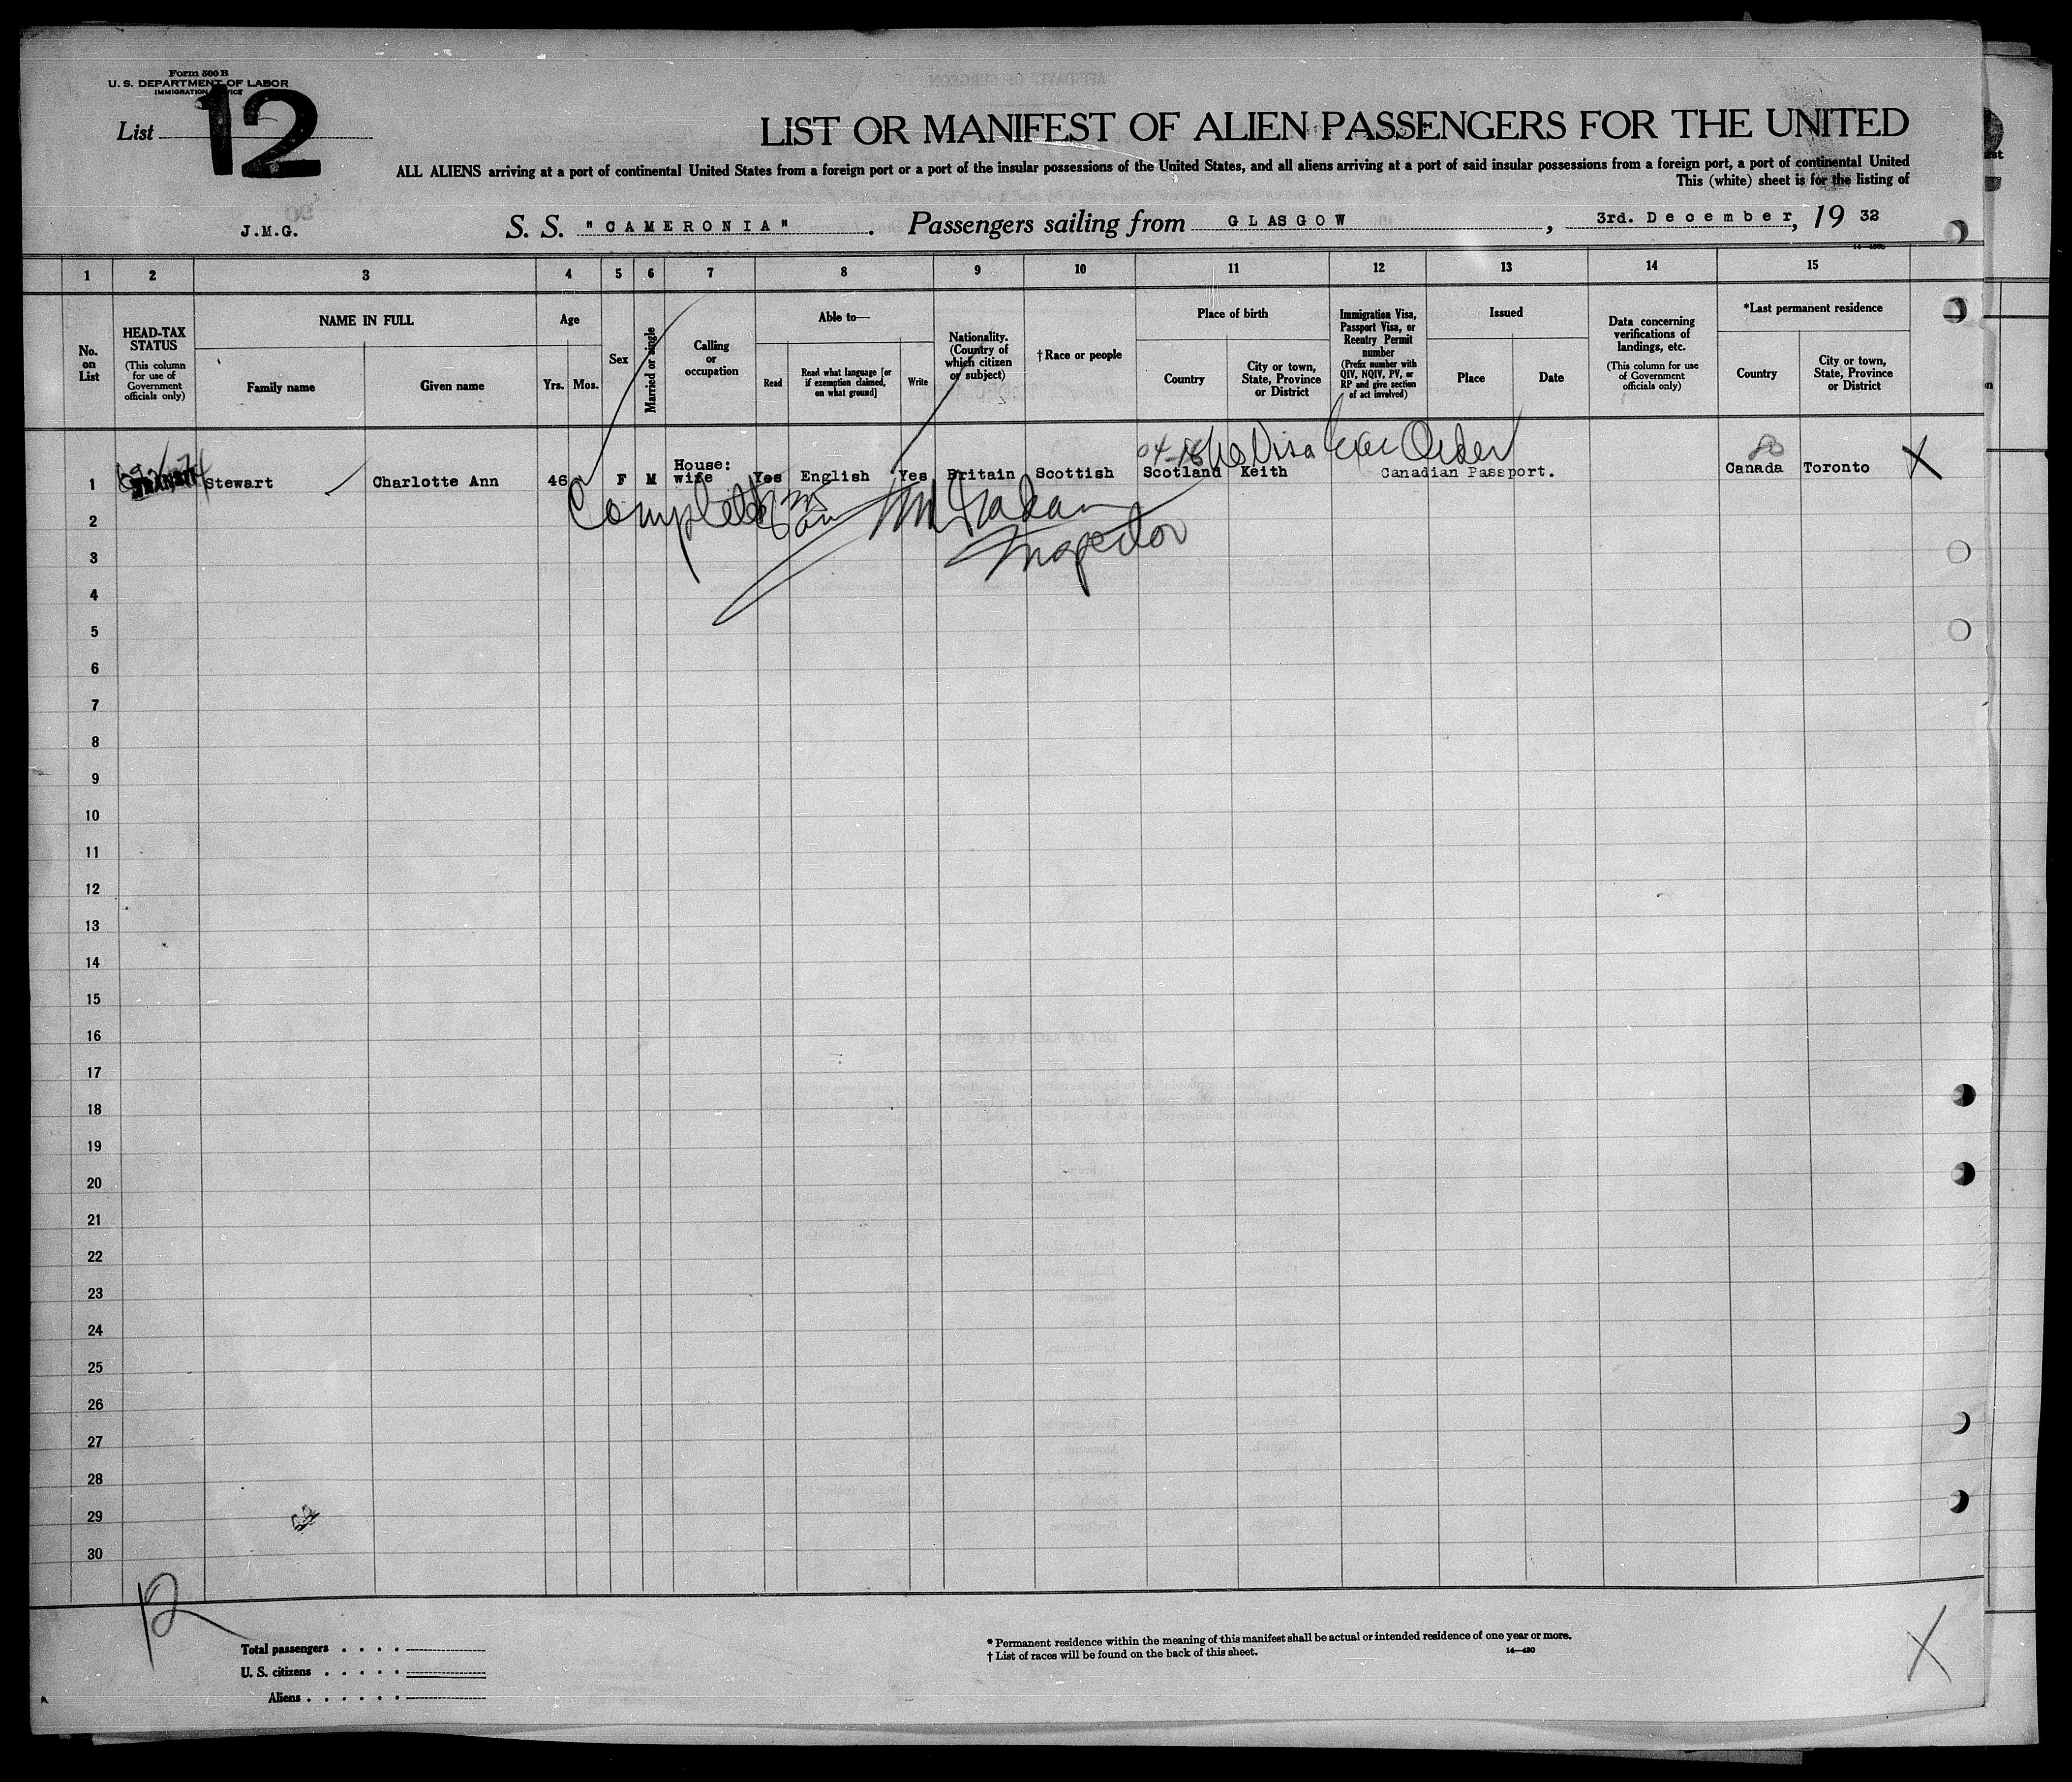 Form 500 B
U. S. DEPARTMENT OF LABOR
IMMIGRATION
List 12
LIST OR MANIFEST OF ALIEN PASSENGERS FOR THE UNITED
ALL ALIENS arriving at a port of continental United States from a foreign port or a port of the insular possessions of the United States, and all aliens arriving at a port of said insular possessions from a foreign port, a port of continental United
This (white) sheet is for the listing of
J.M.G.
S. S. "CAMERONIA". Passengers sailing from GLASGOW, 3rd. December, 19 32
1 2 3 4 5 6 7 8 9 10 11 12 13 14 15
No. on List
HEAD-TAX STATUS
(This column for use of Government officials only)
NAME IN FULL
Family name
Given name
Age
Yrs. Mos.
Sex
Married or single
Calling or occupation
Able to—
Read
Read what language [or if exemption claimed, on what ground]
Write
Nationality. (Country of which citizen or subject)
†Race or people
Place of birth
Country
City or town, State, Province or District
Immigration Visa, Passport Visa, or Reentry Permit number
(Prefix number with QIV, NQIV, PV, or RP and give section of act involved)
Issued
Place
Date
Data concerning verifications of landings, etc.
(This column for use of Government officials only)
*Last permanent residence
Country
City or town, State, Province or District
No Visa Exec Order
1 TRANSIT Stewart Charlotte Ann 46 F M House: wife Yes English Yes Britain Scottish Scotland Keith Canadian Passport. Canada Toronto X
Inspector
2
3
4
5
6
7
8
9
10
11
12
13
14
15
16
17
18
19
20
21
22
23
24
25
26
27
28
29
30
12
Total passengers . . . .
U. S. citizens . . . . .
Aliens . . . . . .
* Permanent residence within the meaning of this manifest shall be actual or intended residence of one year or more.
† List of races will be found on the back of this sheet.
14—430
X